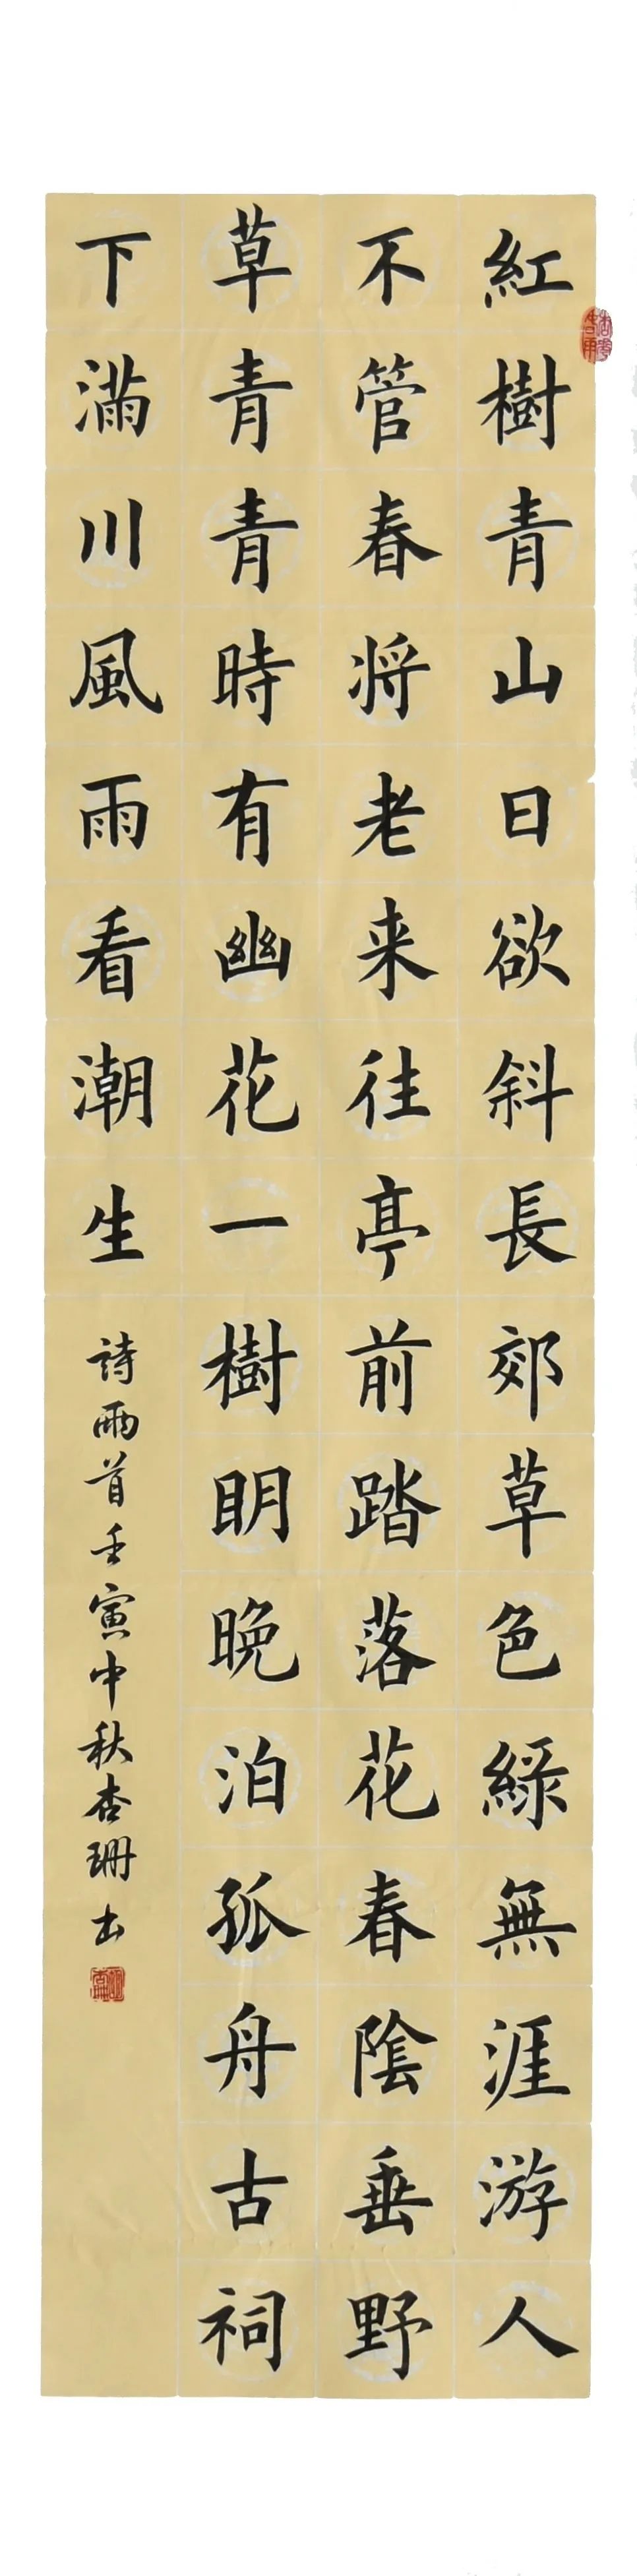 紅樹青山日欲斜長郊草色綠無涯游人
不管春將老来往亭前踏落花春陰垂野
草青青時有幽花一樹明晚泊孤舟古祠
下滿川風雨看潮生
詩兩首壬寅中秋杏珊书